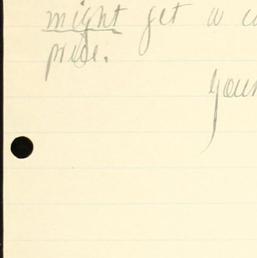 might get a
prize.
your